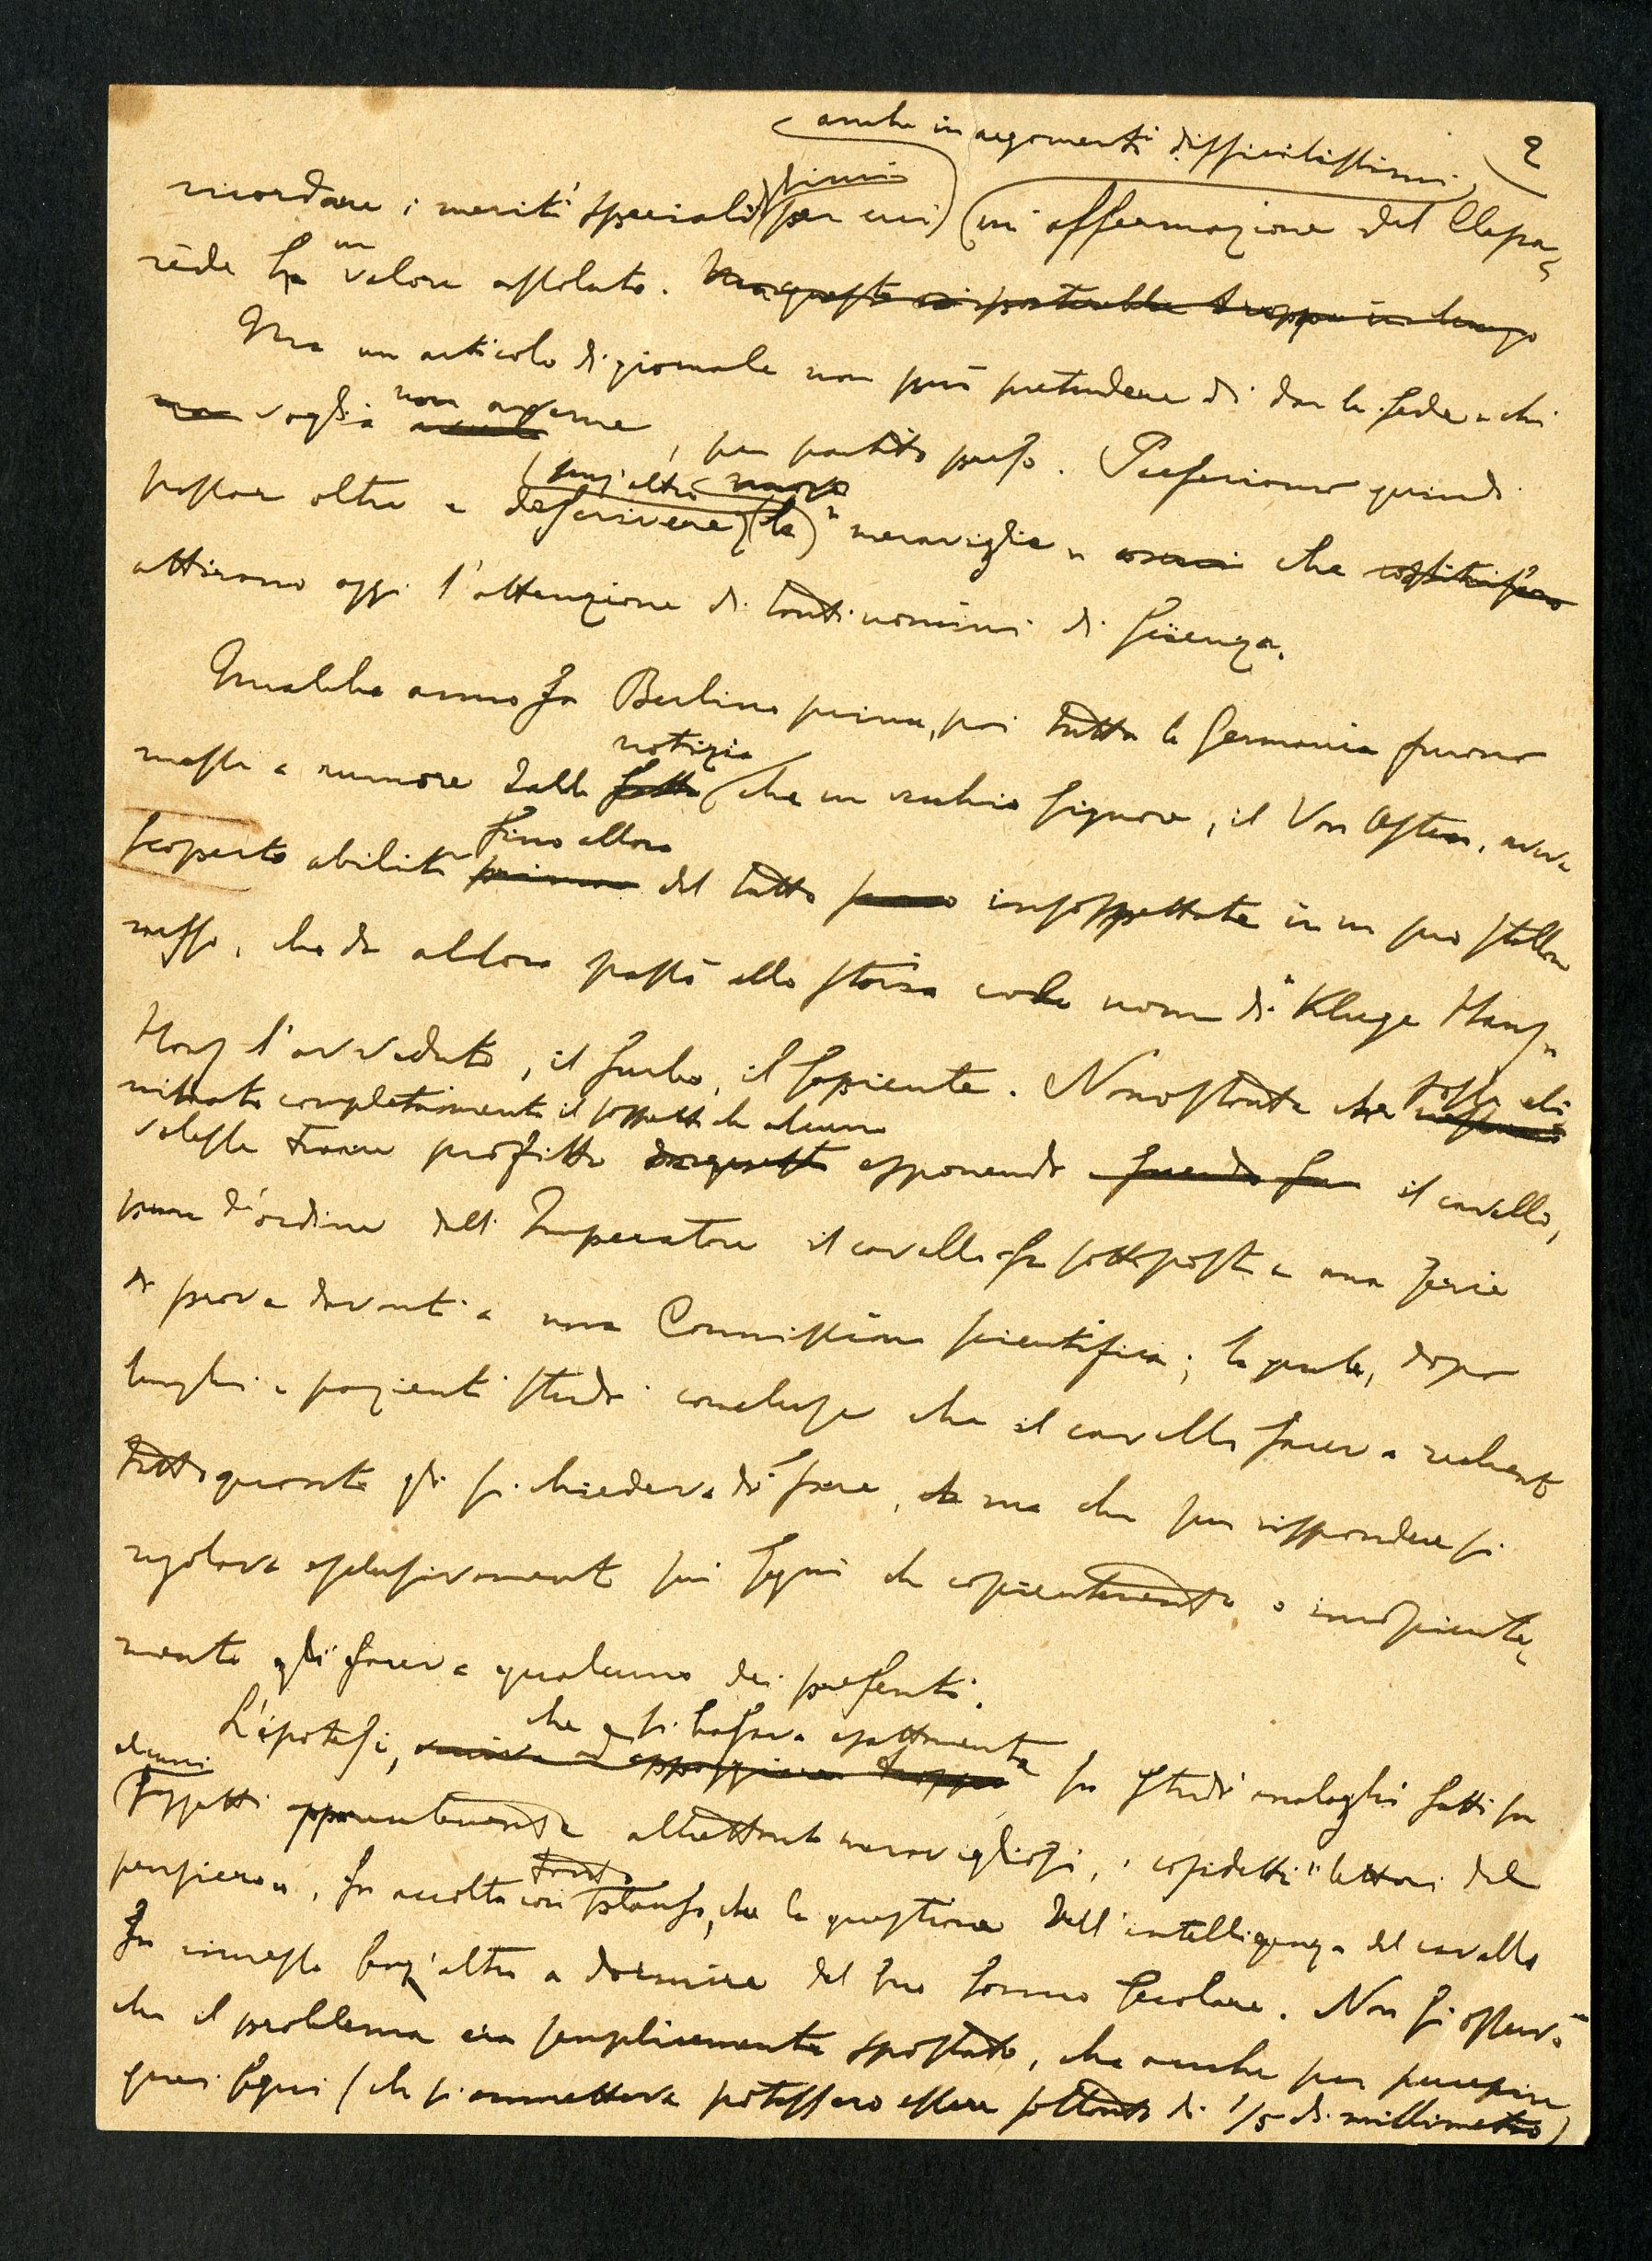 anche in argomenti difficilissimi, 2
ricordare i meriti speciali per cui un'affermazione del Clapa-
rède ha un valore assoluto. Ma questo ci porterebbe troppo in lungo
Ma un articolo di giornale non può pretendere di dar la fede a chi
non voglia averla non averne, per partito preso. Preferiamo quindi
senz'altro nuove
passar oltre a descrivere (le) "meraviglie" che costituiscono
attirano oggi l'attenzione di tanti uomini di scienza.
Qualche anno fa Berlino prima, poi tutta la Germania furono
notizia
messe a rumore dalla fatto che un vecchio signore, il Von Osten, aveva
fino allora
scoperto abilità prima del tutto insospettate in un suo stallone
russo, che da allora passò alla storia col nome di "Kluge Hans"
Hans l'avveduto, il furbo, il sapiente. Nonostante che fosse eli
minato completamente il sospetto che alcuno
volesse trarre profitto da questo esponendo facendo il cavallo,
pure d'ordine dell'Imperatore il cavallo fu sottoposto a una serie
di prove davanti a una Commissione scientifica; la quale, dopo
lunghi e pazienti studi concluse che il cavallo faceva realmente
tutto quanto gli si chiedeva di fare, ma che per rispondere si
regolava esclusivamente sui segni che coscientemente o incosciente-
mente gli faceva qualcuno dei presenti.
che si basava esattamente
L'ipotesi, veniva ad appoggiare troppo su studi analoghi fatti su
alcuni
soggetti apparentemente altrettanto meravigliosi, i cosidetti "lettori del
tanto
pensiero", fu accolta con plauso, che la questione dell'intelligenza del cavallo
fu rimessa senz'altro a dormire del suo sonno secolare. Non si osservò
che il problema era semplicemente spostato, che anche per percepire
quei segni (che si ammetteva potessero essere soltanto di 1/5 di millimetro)